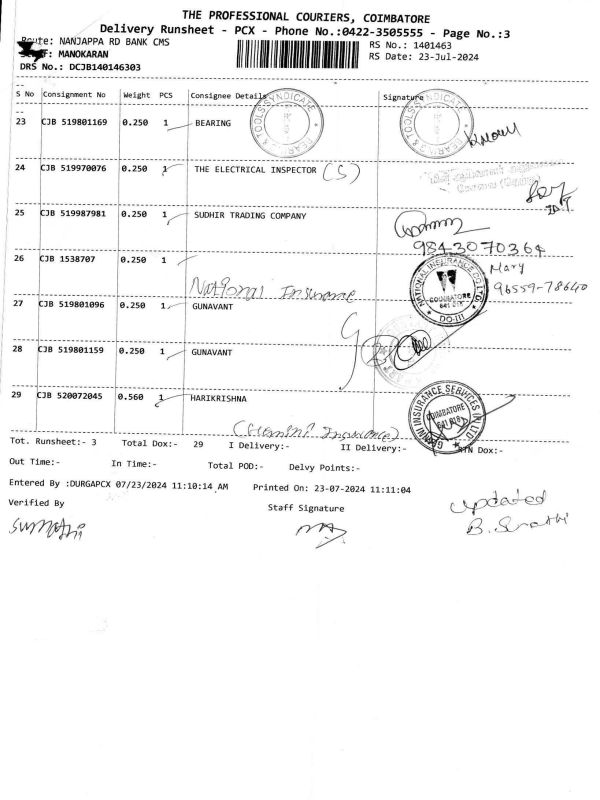 THE PROFESSIONAL COURIERS, COIMBATORE
Delivery Runsheet - PCX - Phone No.:0422-3505555 - Page No.:3
Route: NANJAPPA RD BANK CMS
RS No.: 1401463
MANOKARAN
RS Date: 23-Jul-2024
DRS No.: DCJB140146303
S No Consignment No Weight PCS Consignee Details Signature
23 CJB 519801169 0.250 1 BEARING
24 CJB 519970076 0.250 1 THE ELECTRICAL INSPECTOR (S)
25 CJB 519987981 0.250 1 SUDHIR TRADING COMPANY
9843070364
26 CJB 1538707 0.250 1
National Insurance
NATIONAL INSURANCE CO. LTD.
COIMBATORE
DO-III
Mary
96559-78640
27 CJB 519801096 0.250 1 GUNAVANT
28 CJB 519801159 0.250 1 GUNAVANT
29 CJB 520072045 0.560 1 HARIKRISHNA
(Gemini Insurance)
GEMINI INSURANCE SERVICES (P) LTD
COIMBATORE
641 018
Tot. Runsheet:- 3 Total Dox:- 29 I Delivery:- II Delivery:- RTN Dox:-
Out Time:- In Time:- Total POD:- Delvy Points:-
Entered By :DURGAPCX 07/23/2024 11:10:14 AM Printed On: 23-07-2024 11:11:04
Verified By
Staff Signature
Sumathi
updated